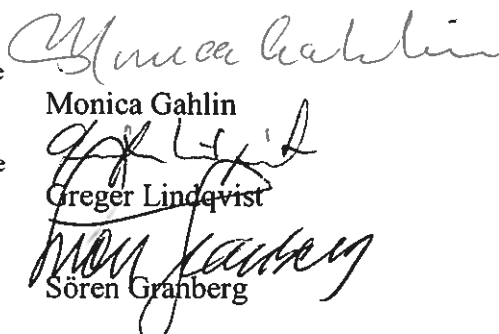 Monica Gahlin
e
Monica Gahlin
Greger Lindqvist
e
Greger Lindqvist
Sören Granberg
Sören Granberg